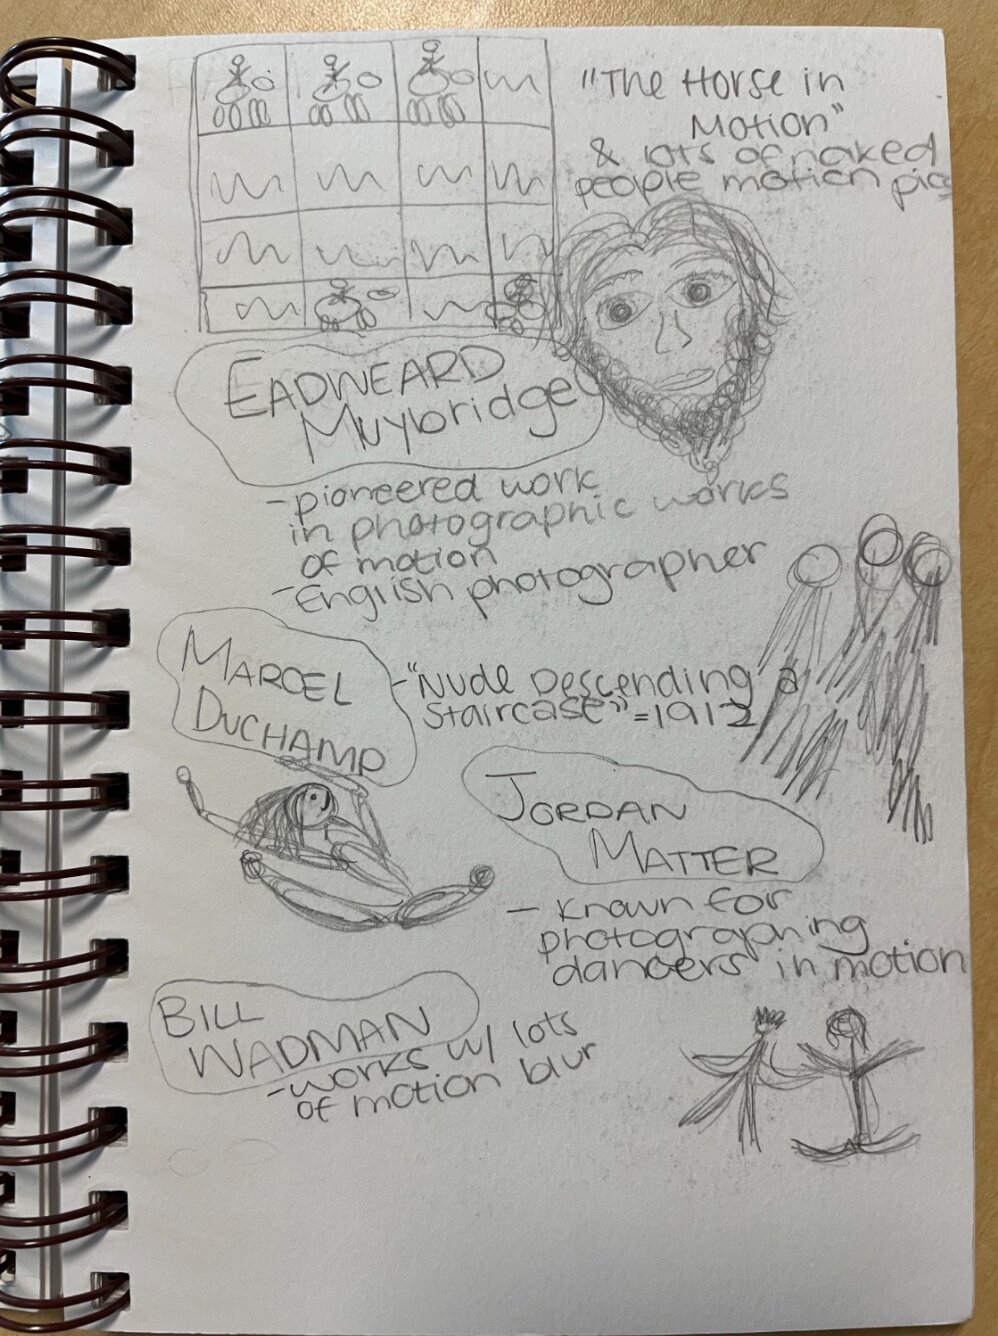 "The Horse in
Motion"
& lots of naked
people motion pics
EADWEARD
Muybridge
- pioneered work
in photographic works
of motion
- English photographer
MARCEL
DUCHAMP
- "Nude Descending a
Staircase" = 1912
JORDAN
MATTER
- known for
photographing
dancers in motion
BILL
WADMAN
- works w/ lots
of motion blur